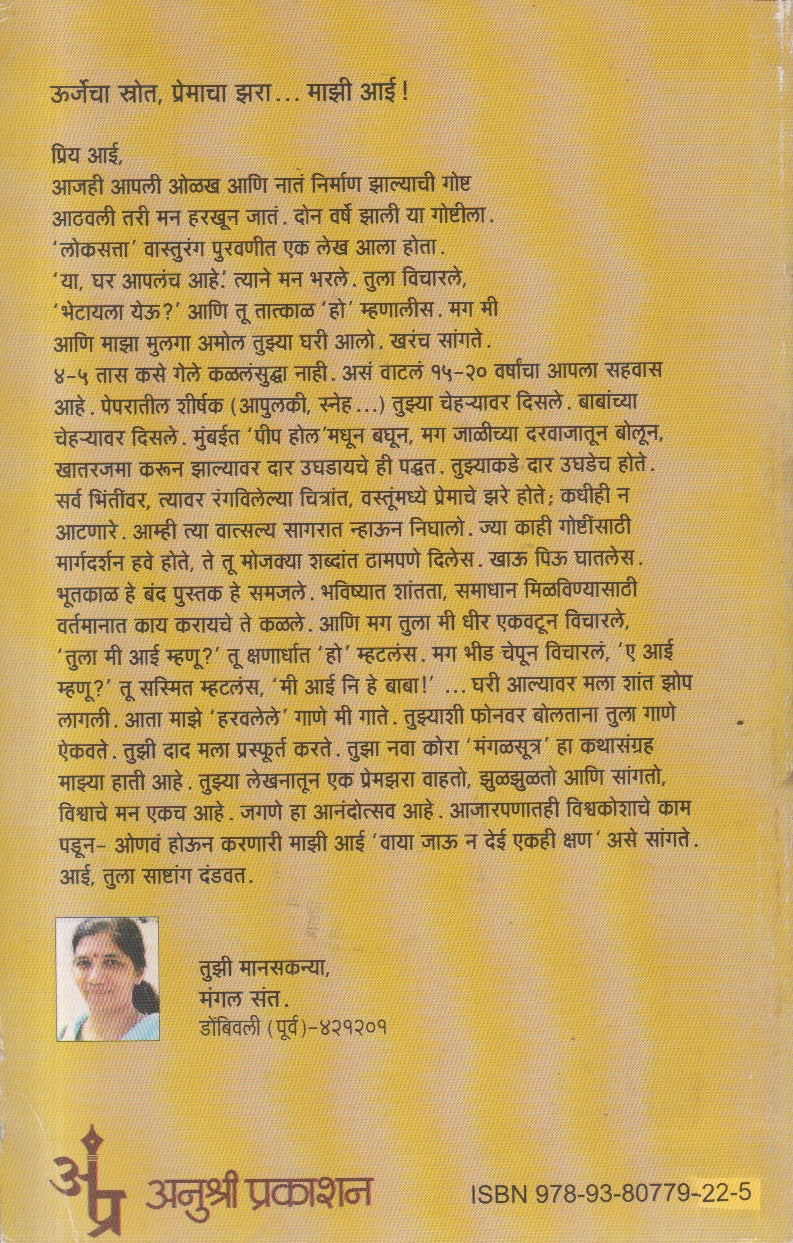 ऊर्जेचा स्रोत, प्रेमाचा झरा... माझी आई!
प्रिय आई,
आजही आपली ओळख आणि नातं निर्माण झाल्याची गोष्ट
आठवली तरी मन हरखून जातं. दोन वर्षे झाली या गोष्टीला.
'लोकसत्ता' वास्तुरंग पुरवणीत एक लेख आला होता.
'या, घर आपलंच आहे.' त्याने मन भरले. तुला विचारले,
'भेटायला येऊ?' आणि तू तात्काळ 'हो' म्हणालीस. मग मी
आणि माझा मुलगा अमोल तुझ्या घरी आलो. खरंच सांगते.
४-५ तास कसे गेले कळलंसुद्धा नाही. असं वाटलं १५-२० वर्षांचा आपला सहवास
आहे. पेपरातील शीर्षक (आपुलकी, स्नेह...) तुझ्या चेहऱ्यावर दिसले. बाबांच्या
चेहऱ्यावर दिसले. मुंबईत 'पीप होल'मधून बघून, मग जाळीच्या दरवाजातून बोलून,
खातरजमा करून झाल्यावर दार उघडायचे ही पद्धत. तुझ्याकडे दार उघडेच होते.
सर्व भिंतींवर, त्यावर रंगविलेल्या चित्रांत, वस्तूंमध्ये प्रेमाचे झरे होते; कधीही न
आटणारे. आम्ही त्या वात्सल्य सागरात न्हाऊन निघालो. ज्या काही गोष्टींसाठी
मार्गदर्शन हवे होते, ते तू मोजक्या शब्दांत ठामपणे दिलेस. खाऊ पिऊ घातलेस.
भूतकाळ हे बंद पुस्तक हे समजले. भविष्यात शांतता, समाधान मिळविण्यासाठी
वर्तमानात काय करायचे ते कळले. आणि मग तुला मी धीर एकवटून विचारले,
'तुला मी आई म्हणू?' तू क्षणार्धात 'हो' म्हटलंस. मग भीड चेपून विचारलं, 'ए आई
म्हणू?' तू सस्मित म्हटलंस, 'मी आई नि हे बाबा!' ... घरी आल्यावर मला शांत झोप
लागली. आता माझे 'हरवलेले' गाणे मी गाते. तुझ्याशी फोनवर बोलताना तुला गाणे
ऐकवते. तुझी दाद मला प्रस्फूर्त करते. तुझा नवा कोरा 'मंगळसूत्र' हा कथासंग्रह
माझ्या हाती आहे. तुझ्या लेखनातून एक प्रेमझरा वाहतो, झुळझुळतो आणि सांगतो,
विश्वाचे मन एकच आहे. जगणे हा आनंदोत्सव आहे. आजारपणातही विश्वकोशाचे काम
पडून- ओणवं होऊन करणारी माझी आई 'वाया जाऊ न देई एकही क्षण' असे सांगते.
आई, तुला साष्टांग दंडवत.
तुझी मानसकन्या,
मंगल संत.
डोंबिवली (पूर्व)-४२१२०१
अं
प्र
अनुश्री प्रकाशन
ISBN 978-93-80779-22-5